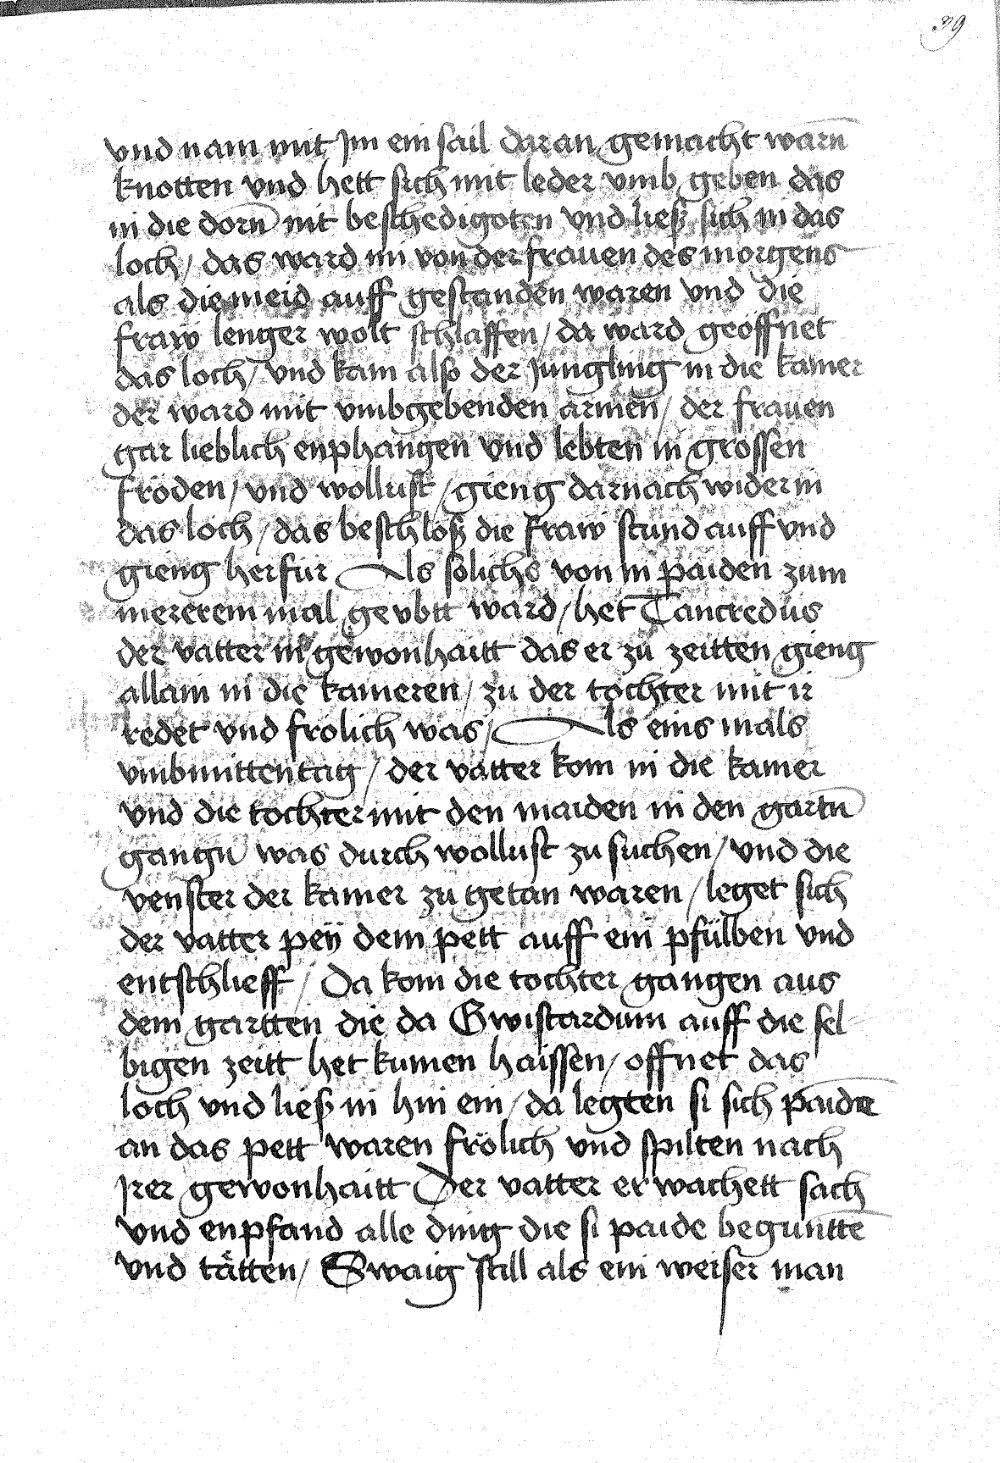 39
vnd nam mit Jm ein sail daran gemacht warn̄
knotten vnd hett sich mit leder vmb geben das
in die dorn̄ nit beschedigoten vnd ließ sich in das
loch / das ward im von der frauen des morgens
als die meid auff gestanden waren vnd die
fraw lenger wolt schlaffen / da ward geöffnet
das loch / vnd kam also der jungling in die kamer
der ward mit vmbgebenden armen / der frauen
gar lieblich enphangen vnd lebten in grossen
fröden / vnd wollust / gieng darnach wider in
das loch / das beschloß die fraw stund auff vnd
gieng herfür Als solichs von in paiden zum
mererem mal gevbtt ward / het Tancredus
der vatter in gewonhaitt das er zu zeitten gieng
allain in die kameren / zu der tochter mit ir
redet vnd frolich was / Als eins mals
vmbmittentag / der vatter kom in die kamer
vnd die tochter mit den maiden in den gartn̄
gangn̄ was durch wollust zu suchen / vnd die
venster der kamer zu getan waren / leget sich
der vatter peÿ dem pett auff ein pfülben vnd
entschlieff / Da kom die tochter gangen aus
dem gartten die da Gwistardum auff die sel-
bigen zeitt het kumen haissen / offnet das
loch vnd ließ in hin ein / da legten si sich paidē
an das pett waren frölich vnd spilten nach
jrer gewonhaitt Der vatter er wachett sach
vnd enpfand alle ding die si paide begunttē
vnd tätten / Swaig still als ein weiser man